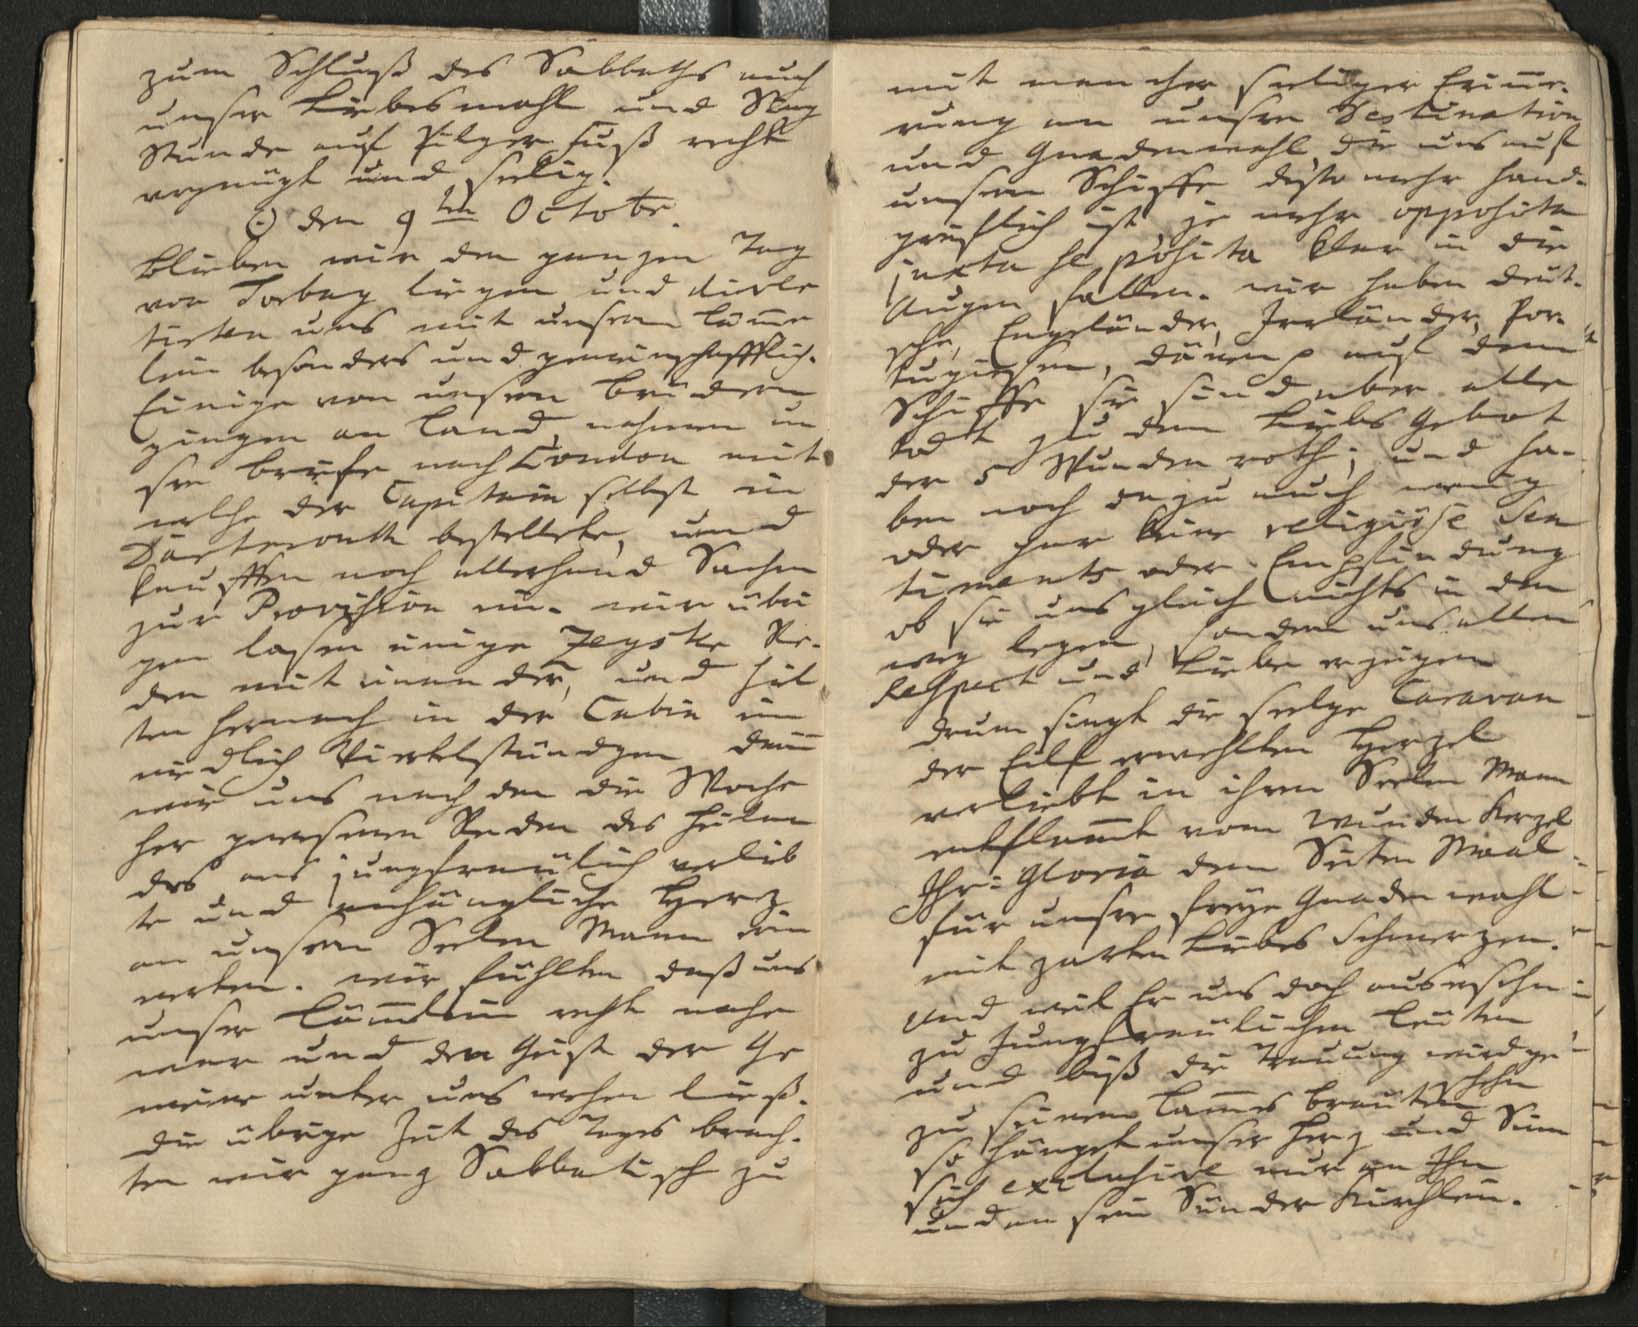 zum Schluß des Sabbaths auch
unser Liebesmahl und Sing
Stunde auf Pilger fuß recht
vergnügt und seelig.
☉ den 9ten Octobr.
blieben wir den ganzen Tag
vor Torbay liegen und divertirten
uns mit unserm Lämm
lein besonders und gemeinschafftlich.
Einige von unsern Brüdern
gingen an Land, nahmen un
sre briefe nach London mit
welche der Capitain selbst in
Dartmouth bestellete, und
kaufften noch allerhand Sachen
zur Provision ein. wir übri
gen lasen einige Zeyster Re-
den mit einander, und hiel
ten hernach in der Cabin ein
niedlich Viertelstündgen darin
wir uns nach den die Woche
her gewesenen Reden des Heilan
des ans jungfräulich verlieb
te und anhängliche Herz
an unsern Seelen Mann erin
nerten. wir fühlten daß uns
unser Lämmlein recht nahe
war und den Geist der Ge
meine unter uns wehen ließ.
die übrige Zeit des Tages brach-
ten wir ganz Sabbatisch zu
mit mancher seeliger Erinne-
rung an unsre Destination
und Gnadenwahl die uns auf
unserm Schiffe desto mehr hand-
greiflich ist, je mehr opposita
juxta se posita klar in die
Augen fallen. wir haben Deut-
sche, Engeländer, Irrländer, Por-
tugiesen, Dänen p auf dem
Schiffe sie sind aber alle
todt zu dem Liebs Gebot
der 5 Wunden roth; und ha-
ben noch dazu auch wenig
oder gar keine religiöse Sen
timents oder Empfindung
ob sie uns gleich nichts in den
weg legen, sondern uns allen
Respect und Liebe erzeigen
drum singt die seelge Caravan
der Eilf erwehlten Herzel
verliebt in ihren Seelen Mann
entflammt vom Wunden Kerzel
Ihr: Gloria dem Seiten Maal
für unsre freye Gnadenwahl
mit zarten Liebes Schmerzen.
Und weil Er uns doch ausersehn
zu Jungfräulichen Leuten
und biß die Trauung wird ge
schehn
zu seinen Lamms Bräuten
so hänget unser Herz und Sinn
sich exclusive nur an Ihn
und an sein Sünder Kirchlein.